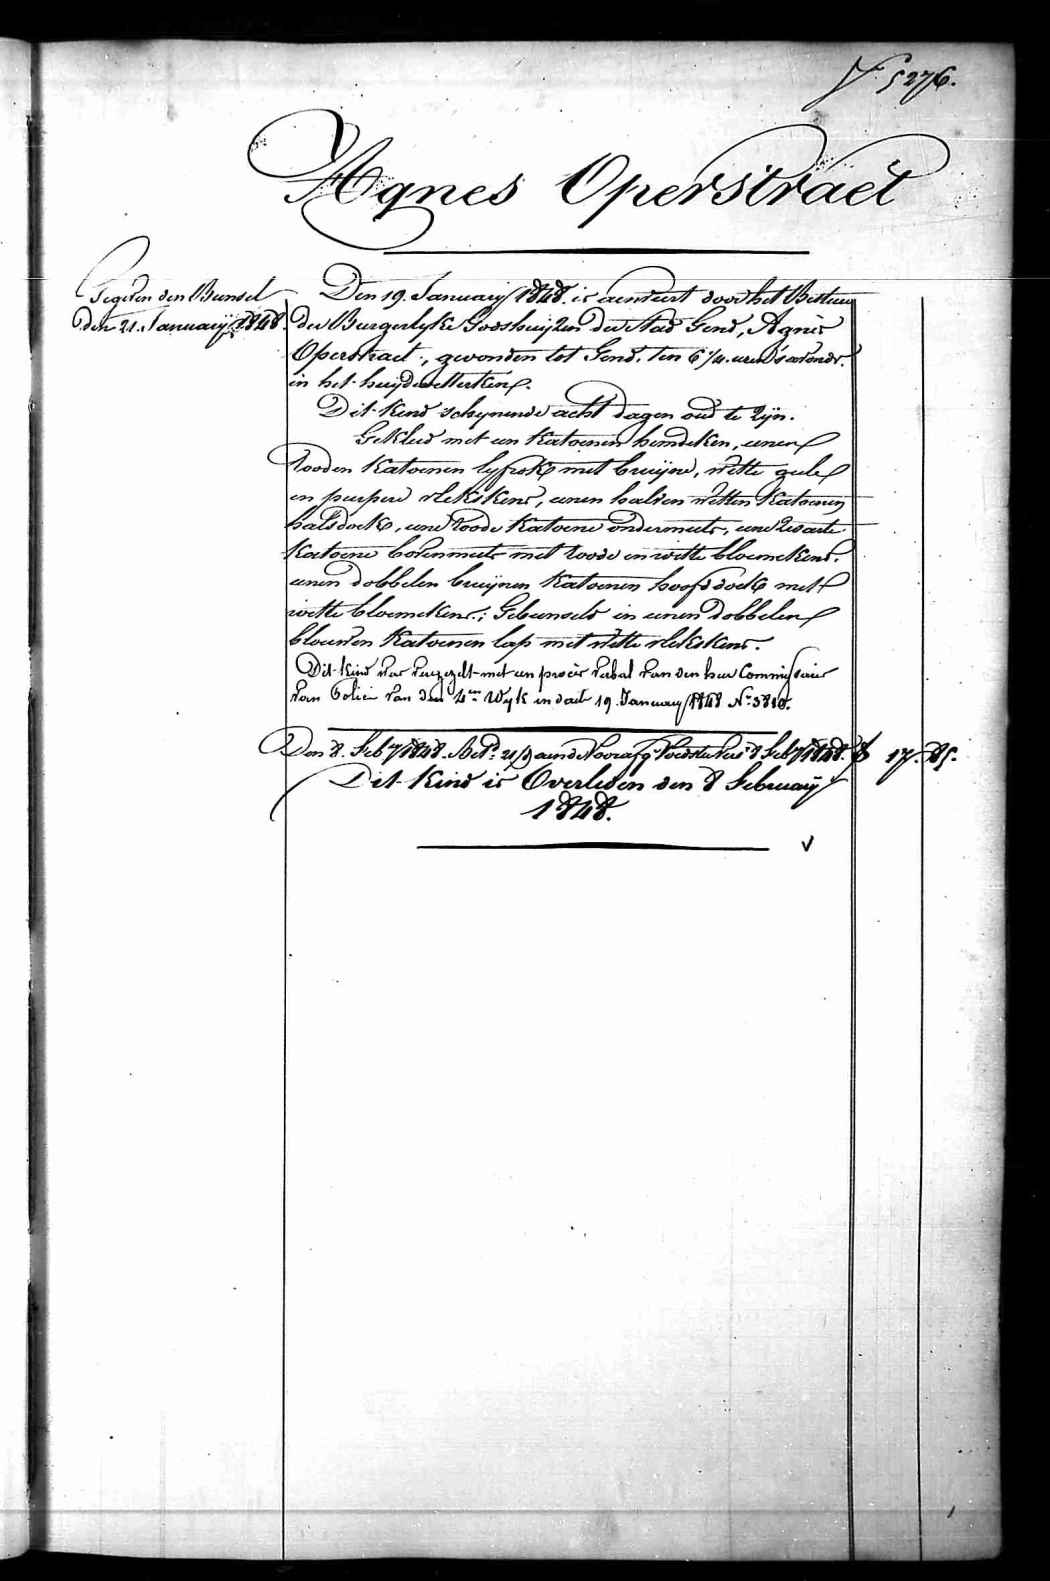 F 5276.
Agnes Operstraet
Gegeven den Bunsel
den 21. January 1848.
Den 19. January 1848. is aenveert door het Bestuur
der Burgerlyke Godshuyzen der Stad Gend, Agnes
Operstraet, gevonden tot Gend, ten 6 1/4. uren s'avonds.
in het huydevettersken.
Dit kind schynende acht dagen oud te zyn.
Gekleed met een katoenen hemdeken, eenen
rooden katoenen lyfrok met bruyne, witte geele
en purpere vlekskens, eenen halven witten katoenen
halsdoek, eene roode katoene ondermuts, eene zwarte
katoene bovenmuts met roode en witte bloemekens.
eenen dobbelen bruynen katoenen hoofddoek met
witte bloemekens; Gebunseld in eenen dobbelen
blauwen katoenen lap met witte vlekskens.
Dit kind was vergezelt met een procès verbal van den heer Commissaire
van Policie van den 4en Wyk in date 19 January 1848 No 3818.
Den 8. Feby 1848. Betd. aen de 8 Feby 1848. 17. 85.
Dit kind is Overleden den 8 February
1848.